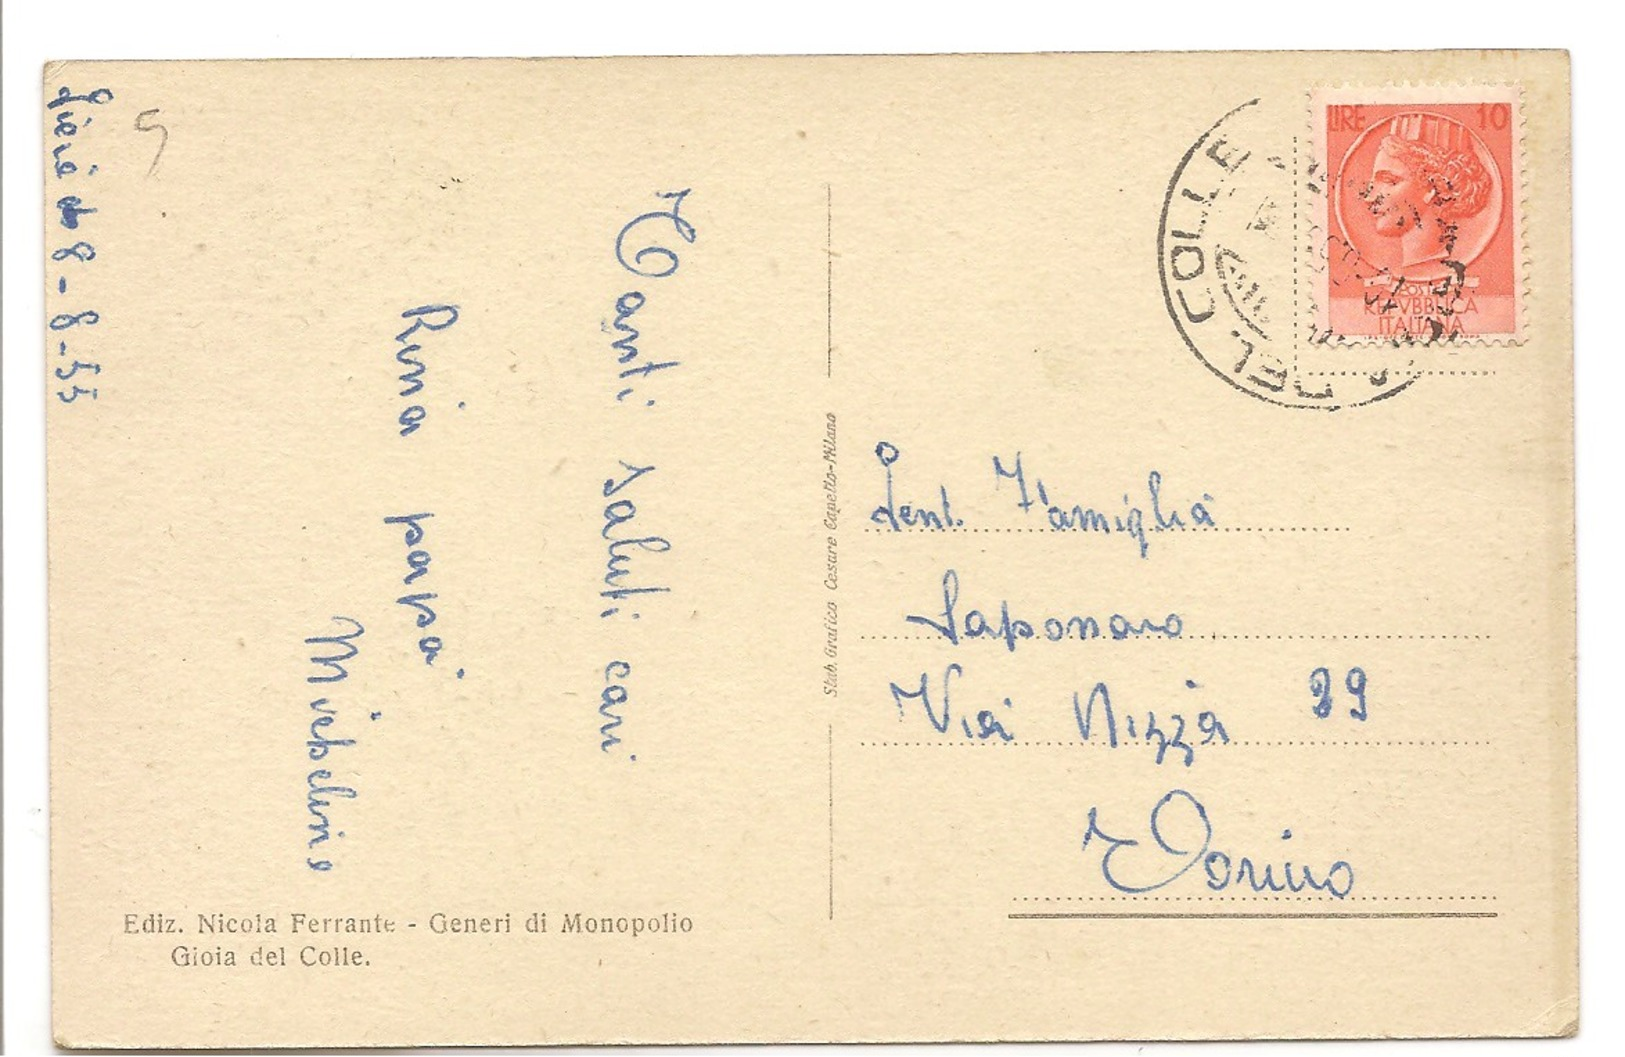 8-8-55
Tanti saluti cari
Rina papà
Michelino
Ediz. Nicola Ferrante - Generi di Monopolio
Gioia del Colle.
Stab. Grafico Cesare Capello-Milano
LIRE 10
POSTE
REPVBBLICA
ITALIANA
DEL COLLE
Gent. Famiglia
Saponaro
Via Nizza 29
Torino